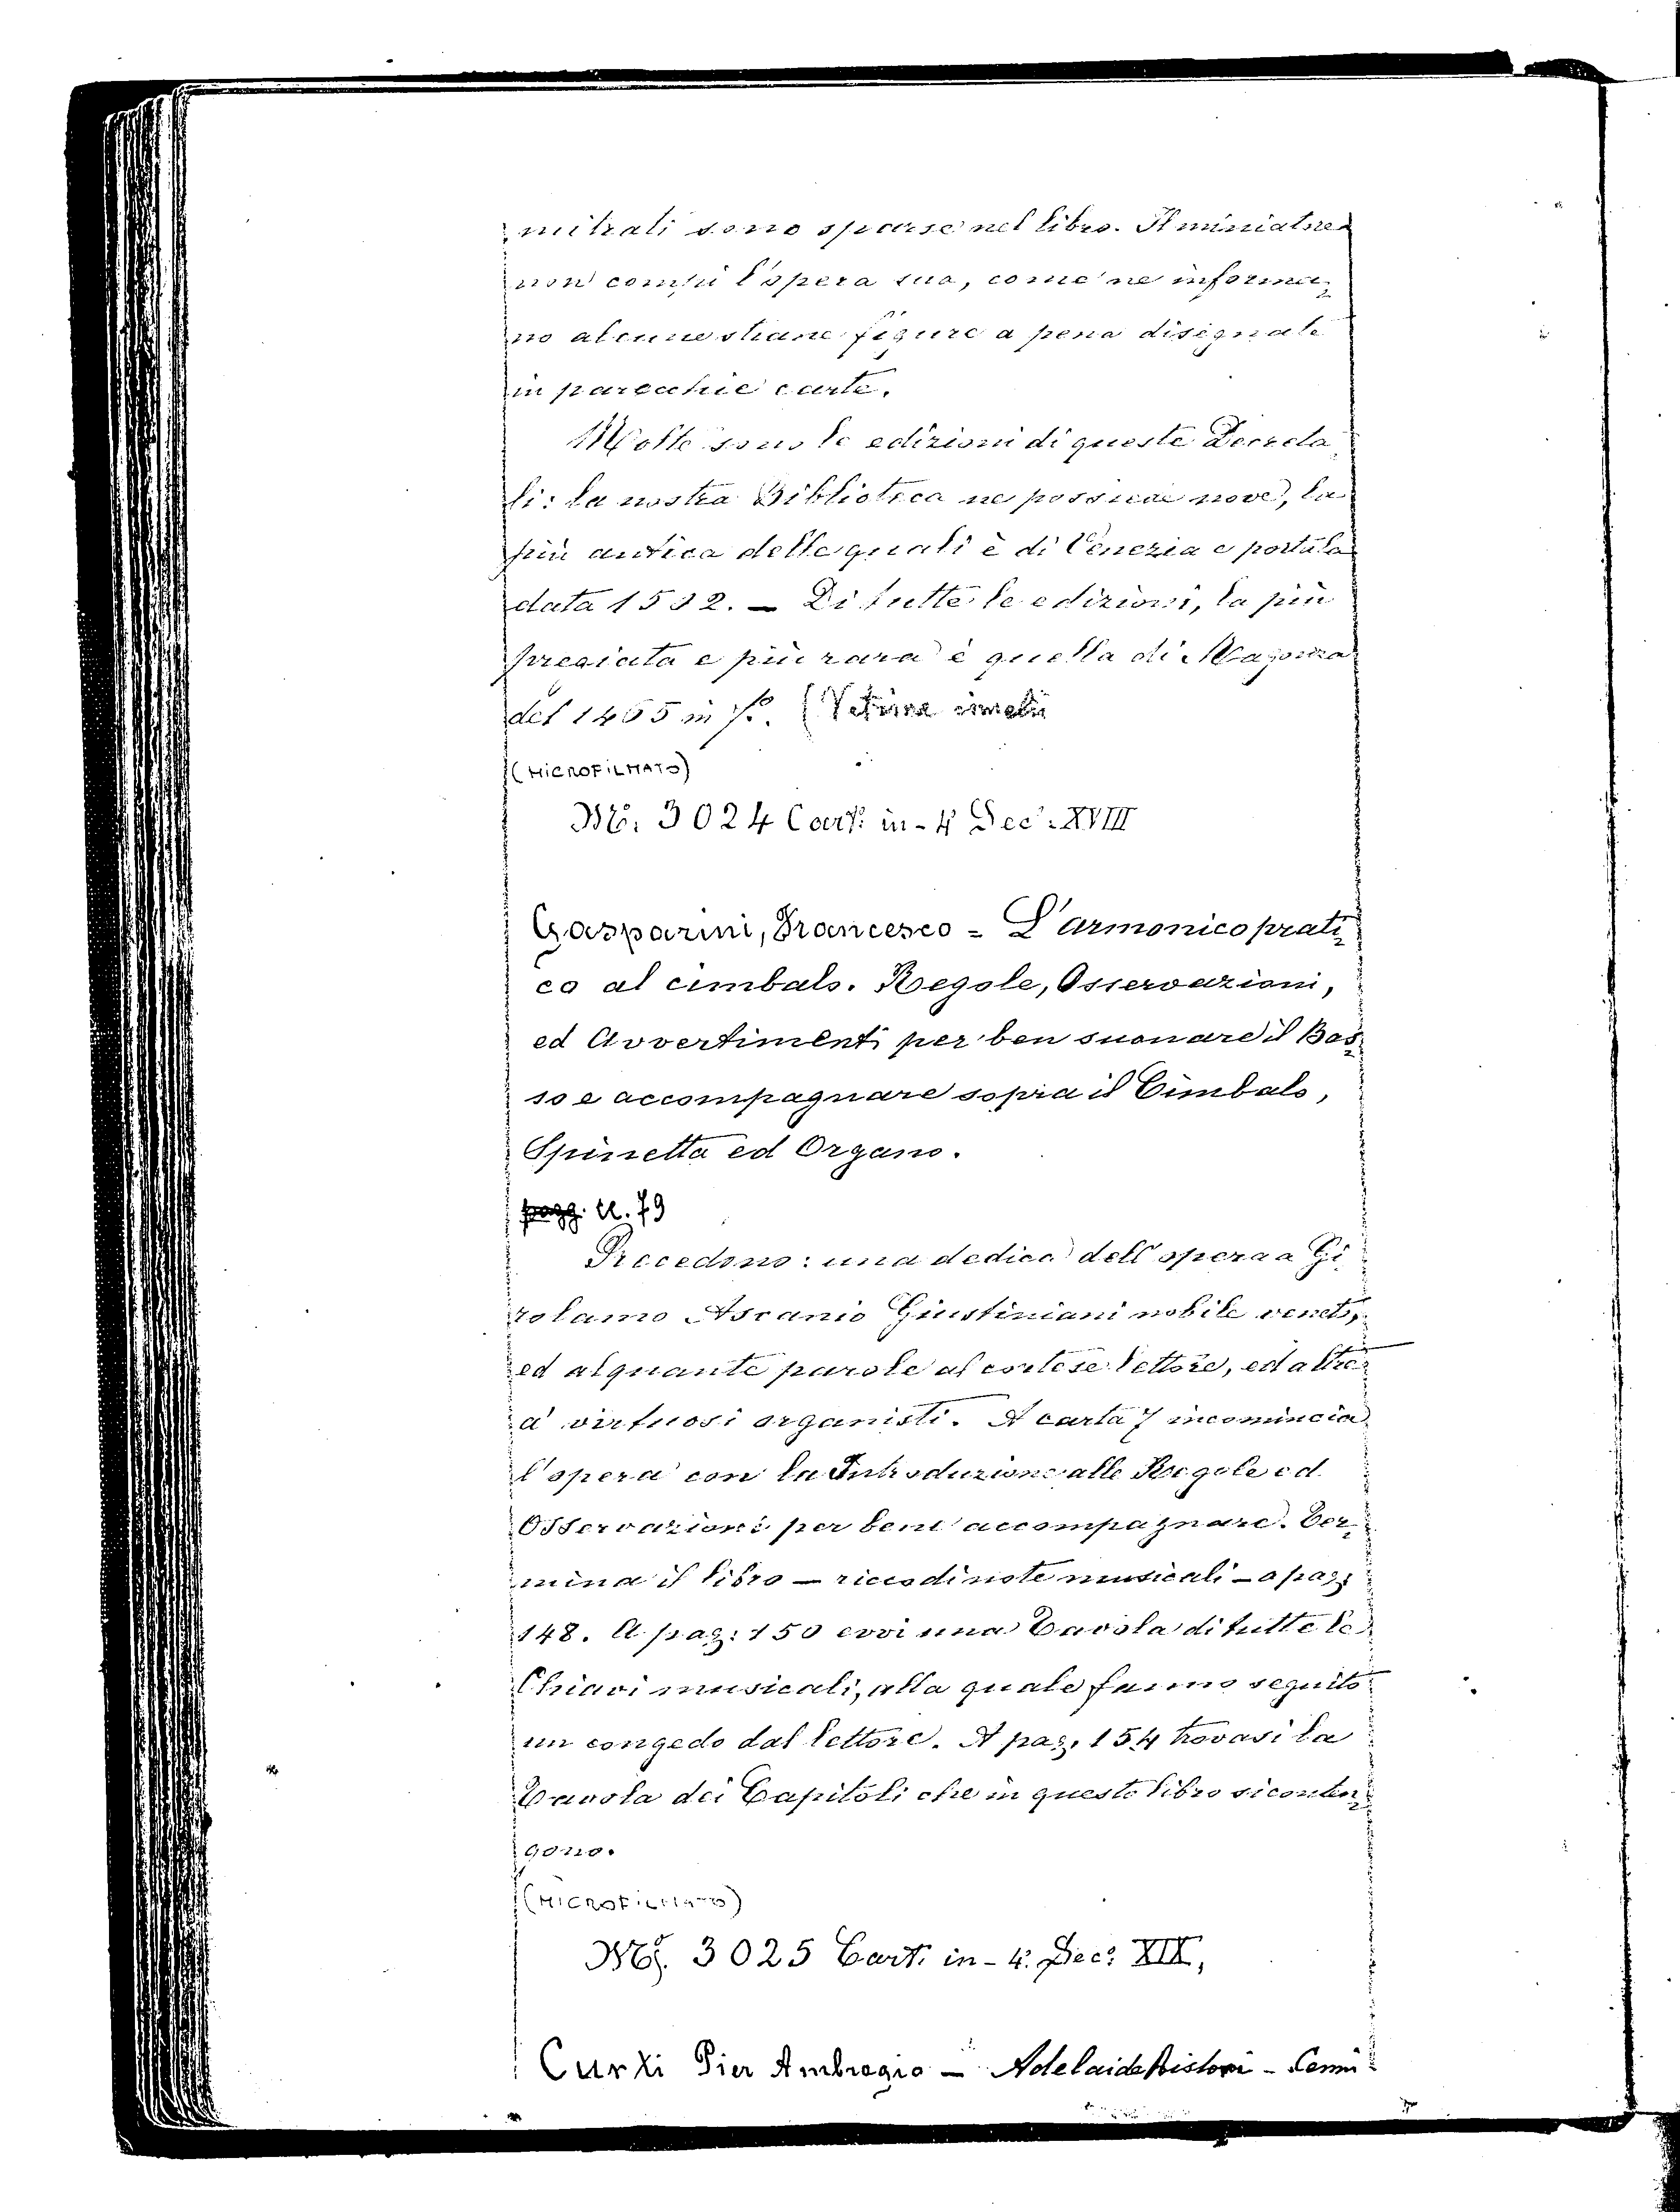 mitrali sono sparse nel libro. Il miniatore
non compì l'opera sua, come ne informa-
no alcune strane figure a pena disegnate
in parecchie carte.
Molte sono le edizioni di queste Decreta
li: la nostra Biblioteca ne possiede nove, la
più antica delle quali è di Venezia e porta la
data 1532. — Di tutte le edizioni, la più
pregiata e più rara è quella di Magonza
del 1465 in f.º (Vetrina
(MICROFILMATO)
Ms. 3024 Cart. in-4 Sec. XVIII
Gasparini, Francesco = L'armonico prati-
co al cimbalo. Regole, Osservazioni,
ed Avvertimenti per ben suonare il Bas-
so e accompagnare sopra il Cimbalo,
Spinetta ed Organo.
pagg. cc. 79
Precedono: una dedica dell'opera a Gi
rolamo Ascanio Giustiniani nobile veneto,
ed alquante parole al cortese lettore, ed altre
a' virtuosi organisti. A carta 7 incomincia
l'opera con la Introduzione alle Regole ed
Osservazioni per bene accompagnare. Ter-
mina il libro — ricco di note musicali — a pag.
148. A pag. 150 evvi una Tavola di tutte le
Chiavi musicali, alla quale fanno seguito
un congedo dal lettore. A pag. 154 trovasi la
Tavola dei Capitoli che in questo libro si conten-
gono.
(MICROFILMATO)
Ms. 3025 Cart. in-4. Sec. XIX,
Curti Pier Ambrogio — Adelaide Ristori - Cenni